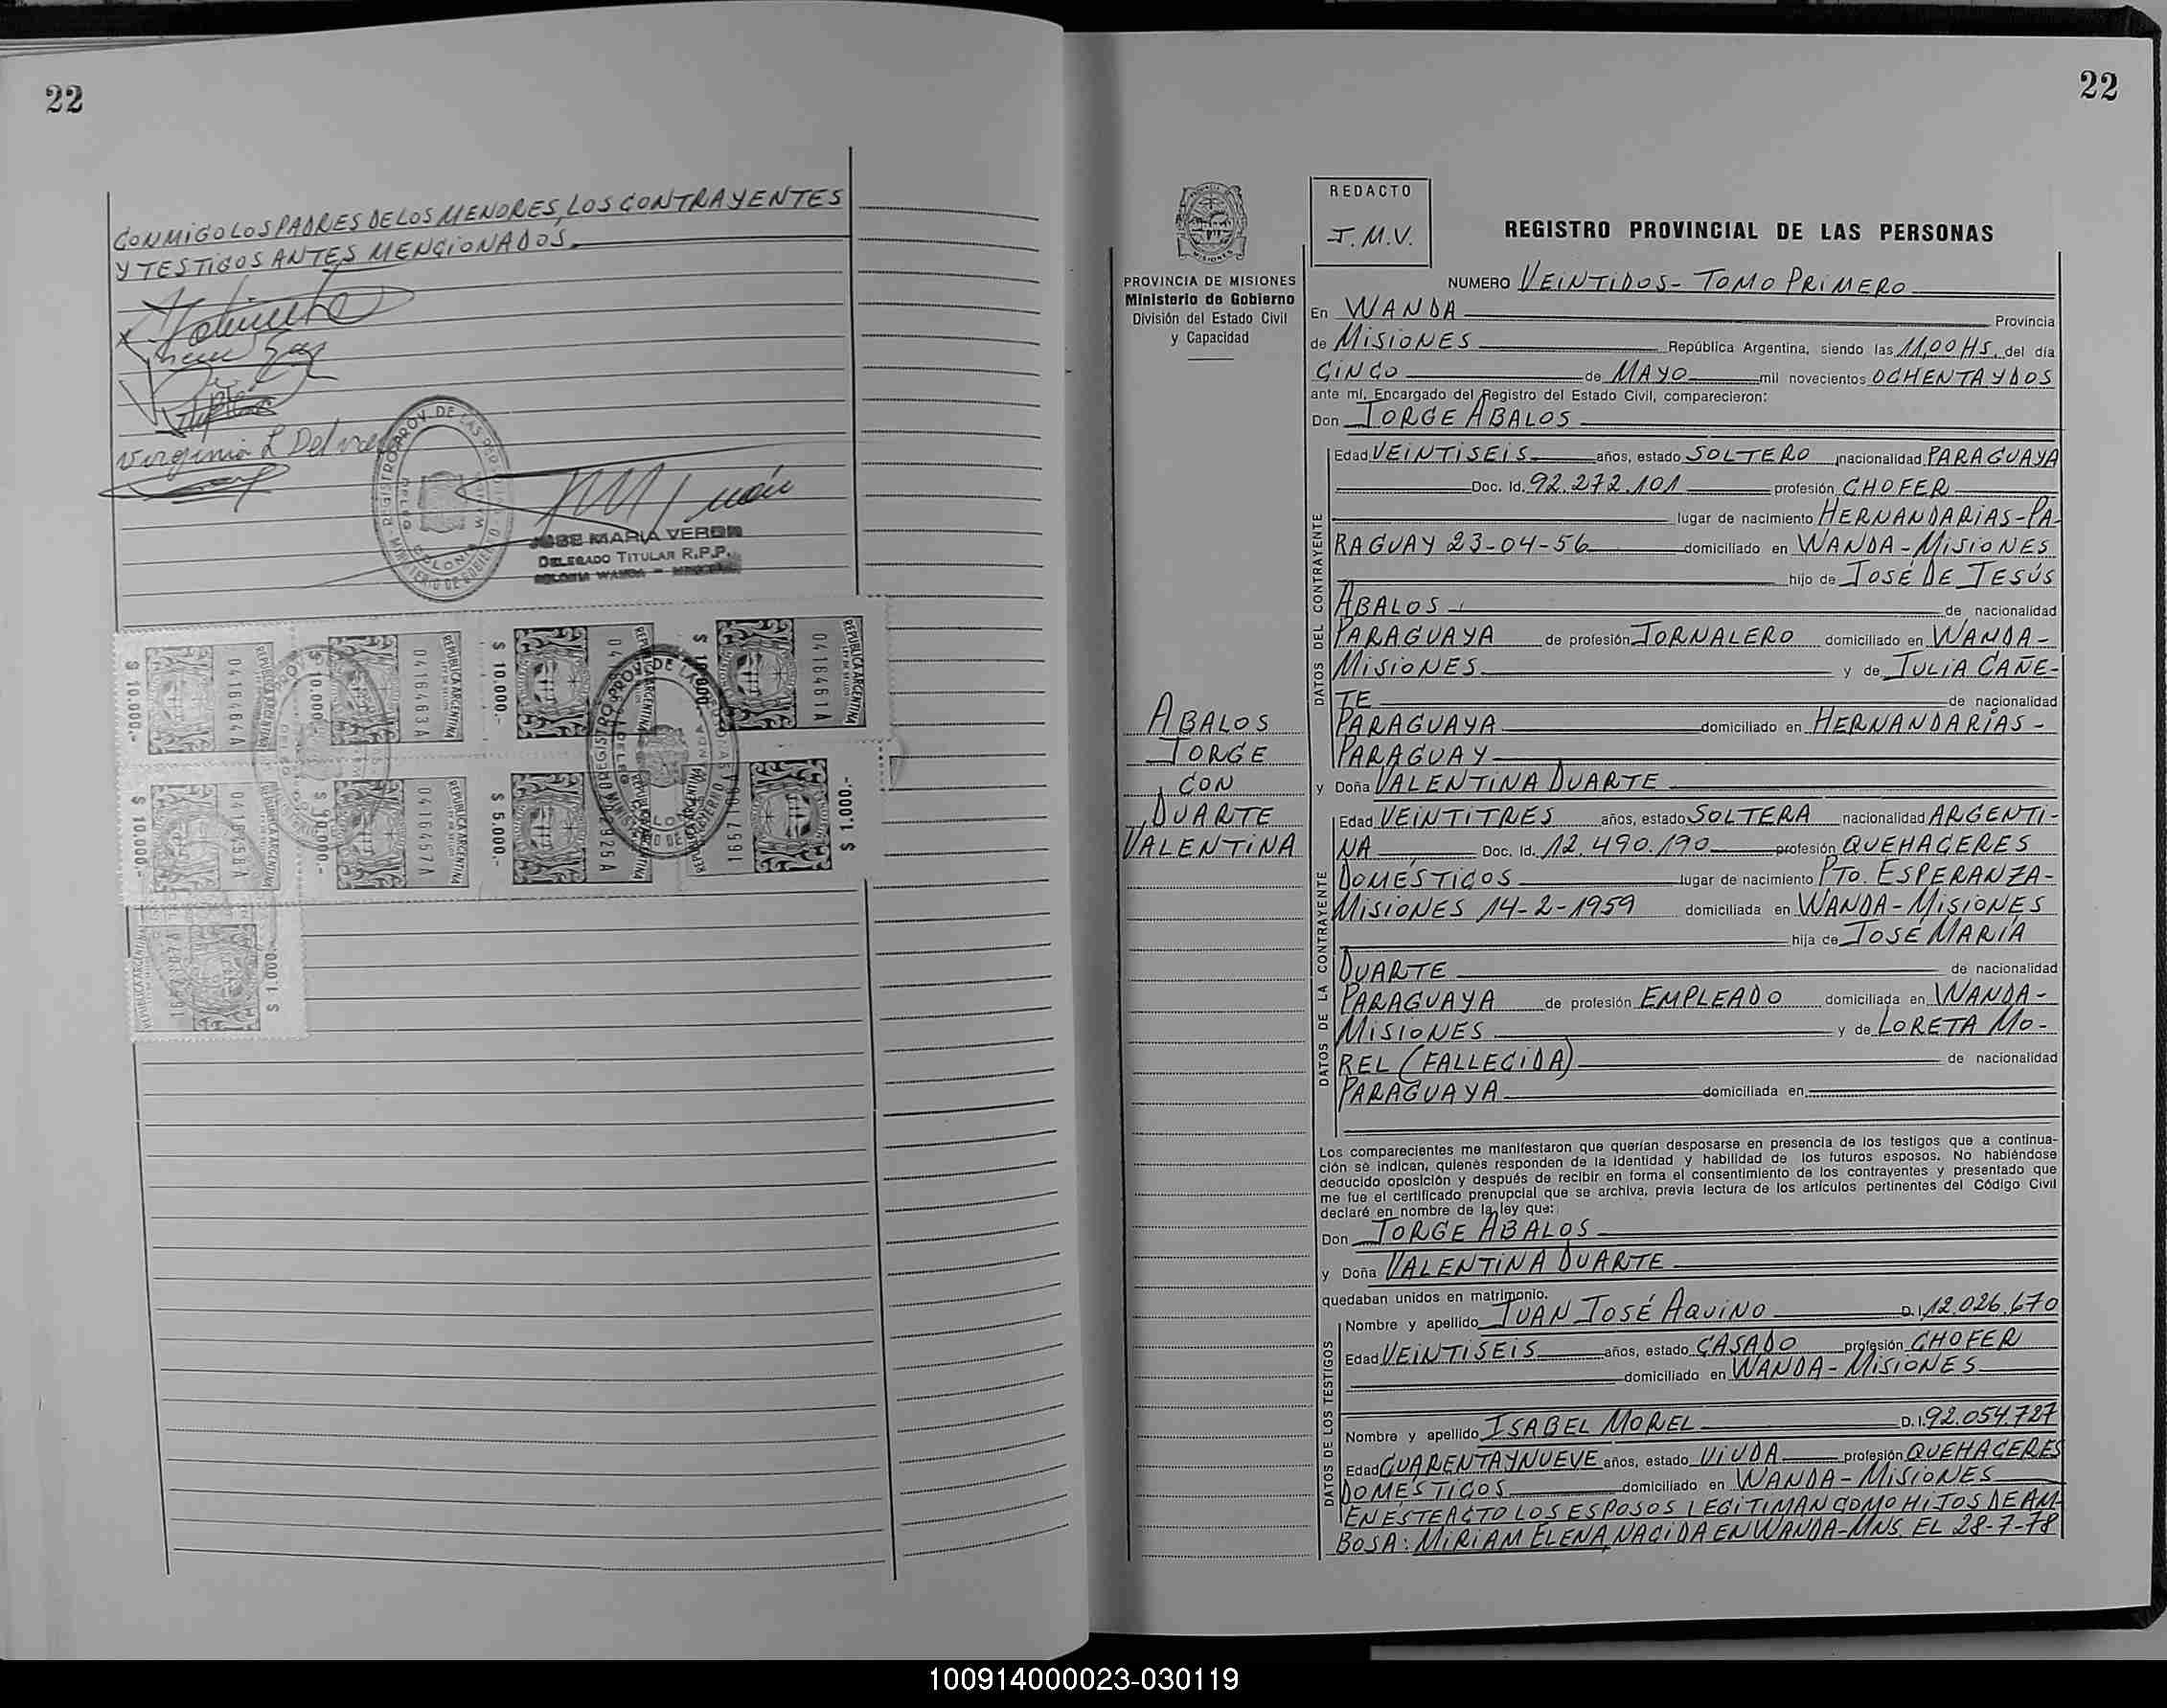 22
CONMIGO LOS PADRES DE LOS MENORES, LOS CONTRAYENTES
Y TESTIGOS ANTES MENCIONADOS.
Virginia L Del
JOSE MARIA VERON
DELEGADO TITULAR R.P.P.
COLONIA WANDA - MISIONES
$ 10.000.-
041646 4A
REPUBLICA ARGENTINA
$ 10.000.-
0416463A
REPUBLICA ARGENTINA
$ 10.000.-
REPUBLICA ARGENTINA
$ 10.000.-
0416461A
REPUBLICA ARGENTINA
$ 10.000.-
0416458A
REPUBLICA ARGENTINA
$ 10.000.-
0416457A
REPUBLICA ARGENTINA
$ 5.000.-
$ 1.000.-
REPUBLICA ARGENTINA
$ 1.000.-
22
PROVINCIA DE MISIONES
Ministerio de Gobierno
División del Estado Civil
y Capacidad
REDACTO
J.M.V.
REGISTRO PROVINCIAL DE LAS PERSONAS
NUMERO VEINTIDOS - TOMO PRIMERO
En WANDA Provincia
de MISIONES República Argentina, siendo las 11,00 HS. del día
CINCO de MAYO mil novecientos OCHENTA Y DOS
ante mí, Encargado del Registro del Estado Civil, comparecieron:
Don JORGE ABALOS
DATOS DEL CONTRAYENTE
Edad VEINTISEIS años, estado SOLTERO nacionalidad PARAGUAYA
Doc. Id. 92.272.101 profesión CHOFER
lugar de nacimiento HERNANDARIAS-PA-
RAGUAY 23-04-56 domiciliado en WANDA-MISIONES
hijo de JOSÉ DE JESÚS
ABALOS de nacionalidad
PARAGUAYA de profesión JORNALERO domiciliado en WANDA-
MISIONES y de JULIA CAÑE-
TE de nacionalidad
PARAGUAYA domiciliado en HERNANDARIAS-
PARAGUAY
ABALOS
JORGE
CON
DUARTE
VALENTINA
y Doña VALENTINA DUARTE
DATOS DE LA CONTRAYENTE
Edad VEINTITRES años, estado SOLTERA nacionalidad ARGENTI-
NA Doc. Id. 12.490.190 profesión QUEHACERES
DOMÉSTICOS lugar de nacimiento PTO. ESPERANZA-
MISIONES 14-2-1959 domiciliada en WANDA-MISIONES
hija de JOSÉ MARÍA
DUARTE de nacionalidad
PARAGUAYA de profesión EMPLEADO domiciliada en WANDA-
MISIONES y de LORETA MO-
REL (FALLECIDA) de nacionalidad
PARAGUAYA domiciliada en
Los comparecientes me manifestaron que querían desposarse en presencia de los testigos que a continua-
ción se indican, quienes responden de la identidad y habilidad de los futuros esposos. No habiéndose
deducido oposición y después de recibir en forma el consentimiento de los contrayentes y presentado que
me fue el certificado prenupcial que se archiva, previa lectura de los artículos pertinentes del Código Civil
declaré en nombre de la ley que:
Don JORGE ABALOS
y Doña VALENTINA DUARTE
quedaban unidos en matrimonio.
DATOS DE LOS TESTIGOS
Nombre y apellido JUAN JOSÉ AQUINO D.I. 12.026.670
Edad VEINTISEIS años, estado CASADO profesión CHOFER
domiciliado en WANDA-MISIONES
Nombre y apellido ISABEL MOREL D.I. 92.054.727
Edad CUARENTA Y NUEVE años, estado VIUDA profesión QUEHACERES
DOMÉSTICOS domiciliado en WANDA-MISIONES
EN ÉSTE ACTO LOS ESPOSOS LEGITIMAN COMO HIJOS DE AM-
BOS A: MIRIAM ELENA, NACIDA EN WANDA-MNS. EL 28-7-78
100914000023-030119